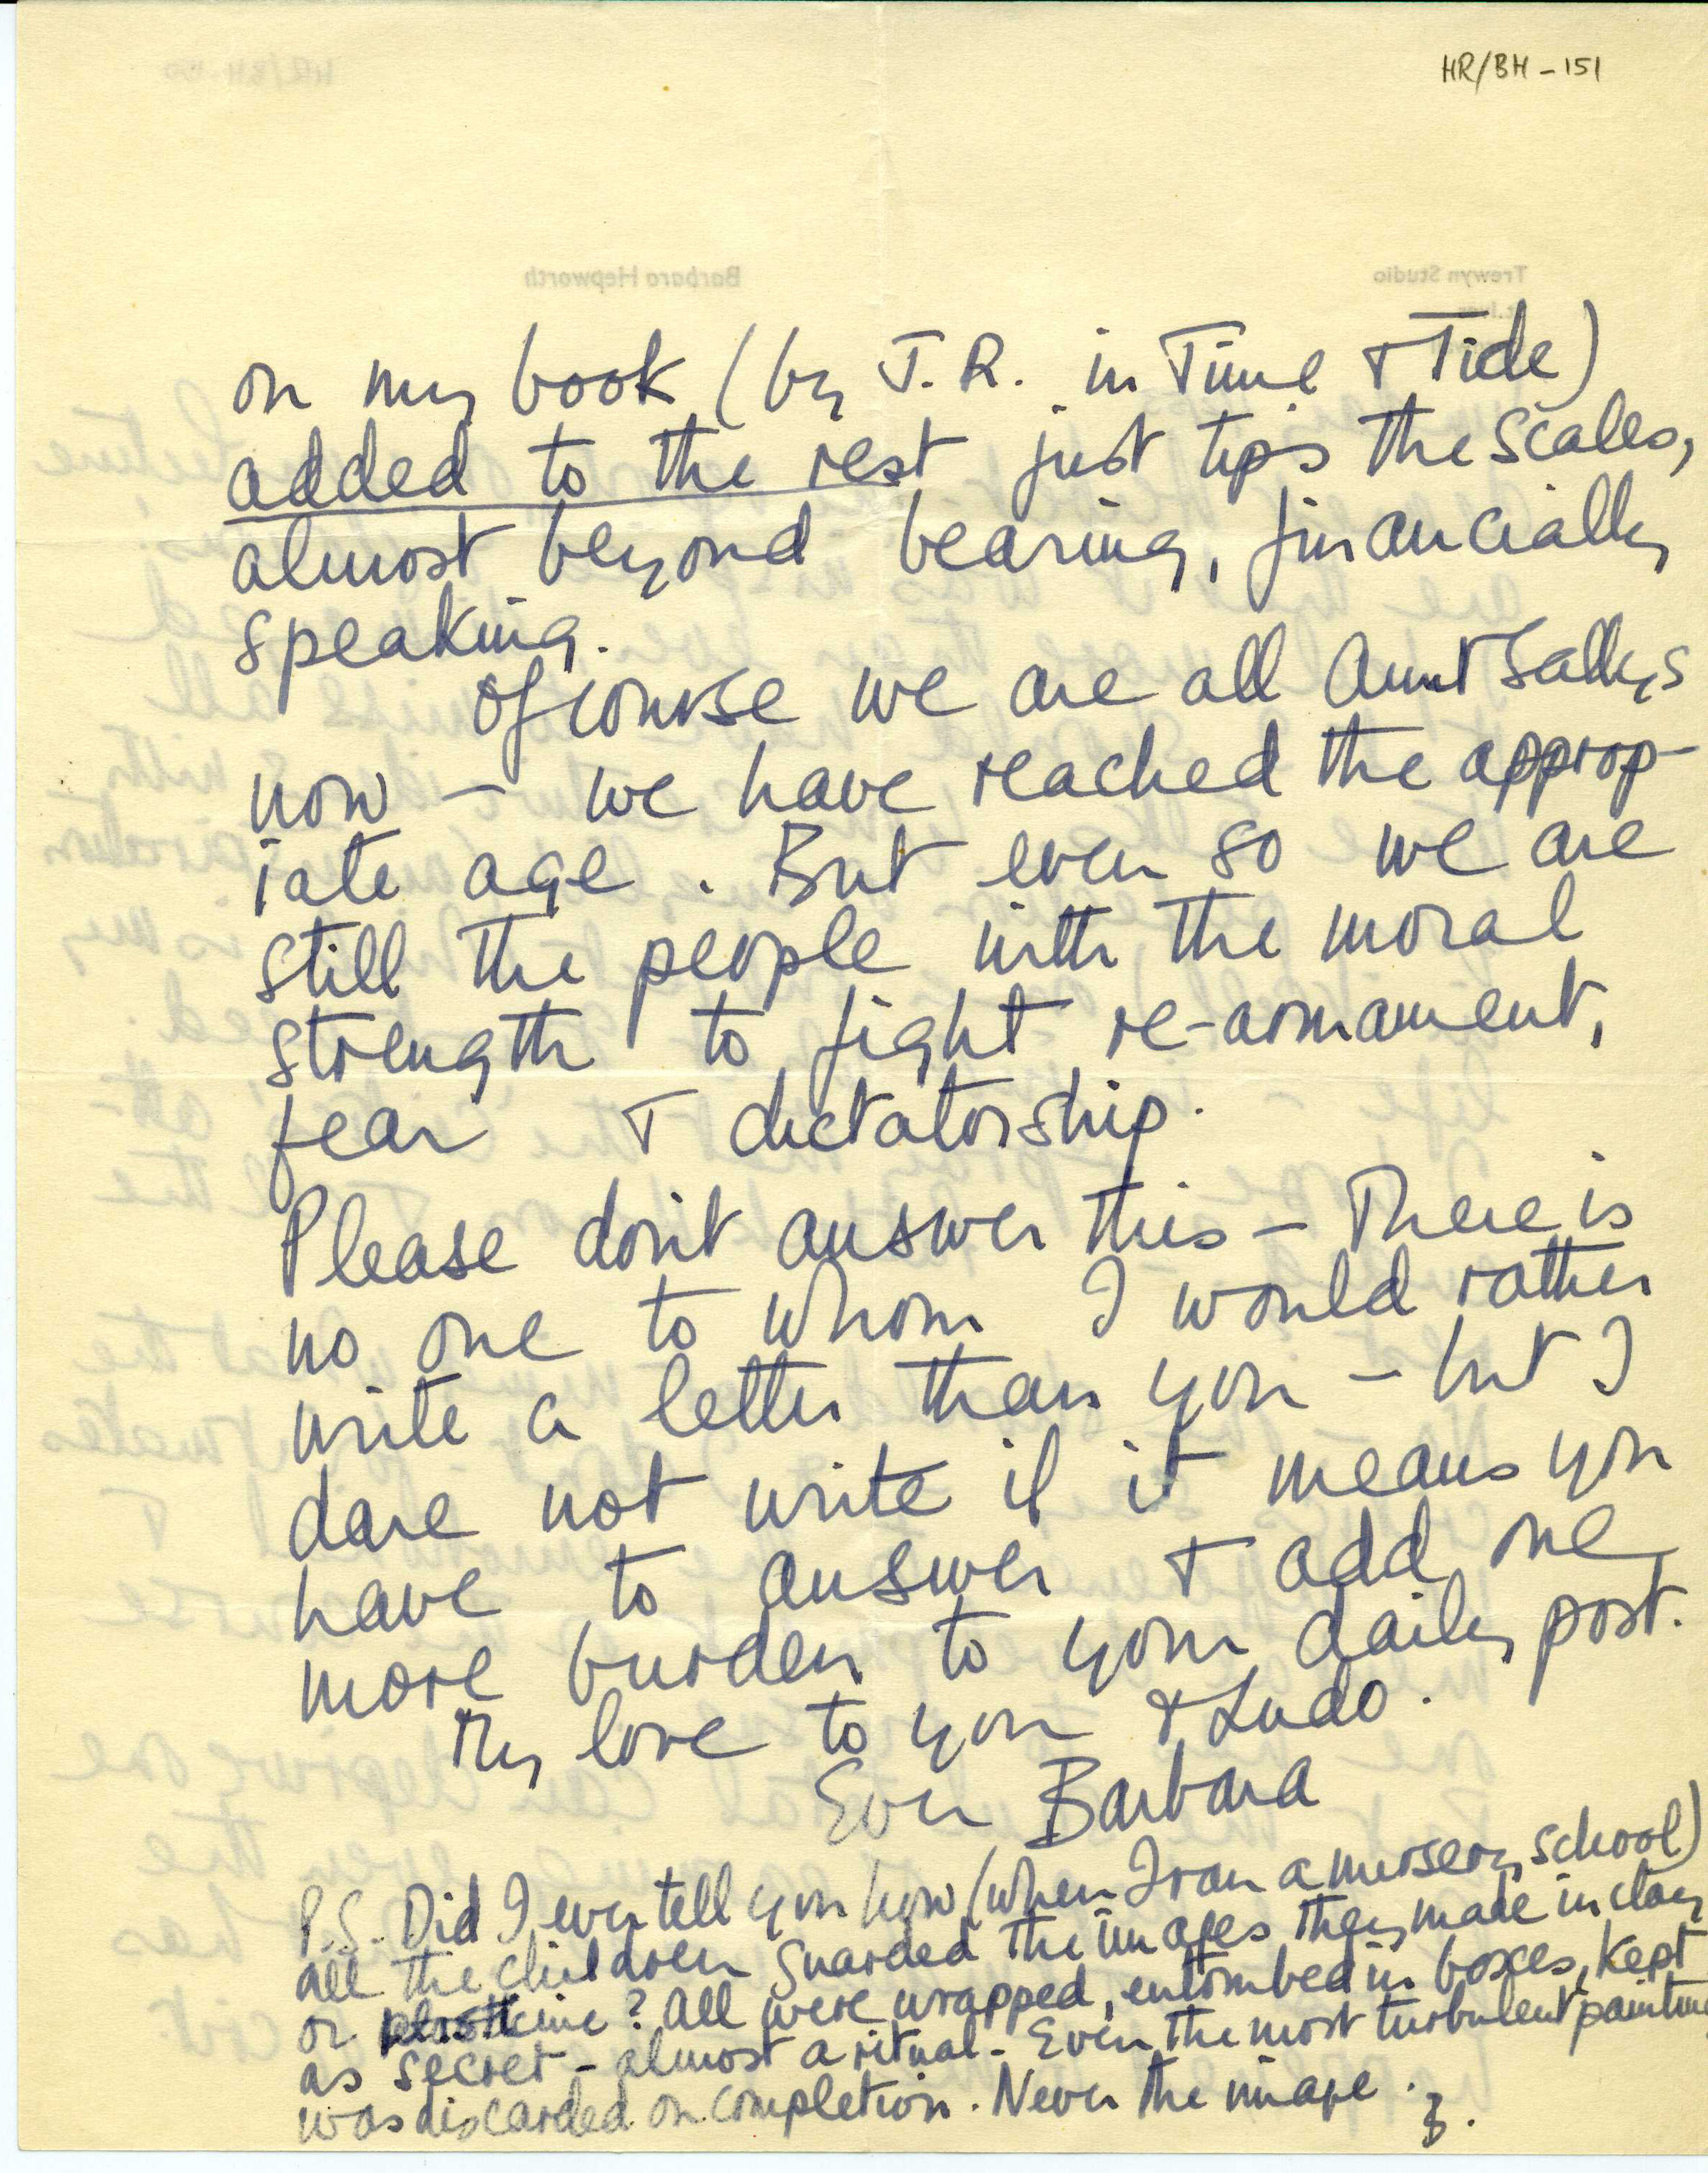 HR/BH - 151
Barbara Hepworth
Trewyn Studio
on my book (by J.R. in Time & Tide)
added to the rest just tips the scales,
almost beyond bearing, financially
speaking.
Of course we are all Aunt Sallys
now – we have reached the approp-
iate age. But even so we are
still the people with the moral
strength to fight re-armament,
fear & dictatorship.
Please don't answer this – There is
no one to whom I would rather
write a letter than you – but I
dare not write if it means you
have to answer & add one
more burden to your daily post.
My love to you & Ludo.
Ever Barbara
P.S. Did I ever tell you how (when I ran a nursery school)
all the children guarded the images they made in clay
or plasticine? All were wrapped, entombed in boxes, kept
as secret – almost a ritual – Even the most turbulent painting
was discarded on completion. Never the image.
B.